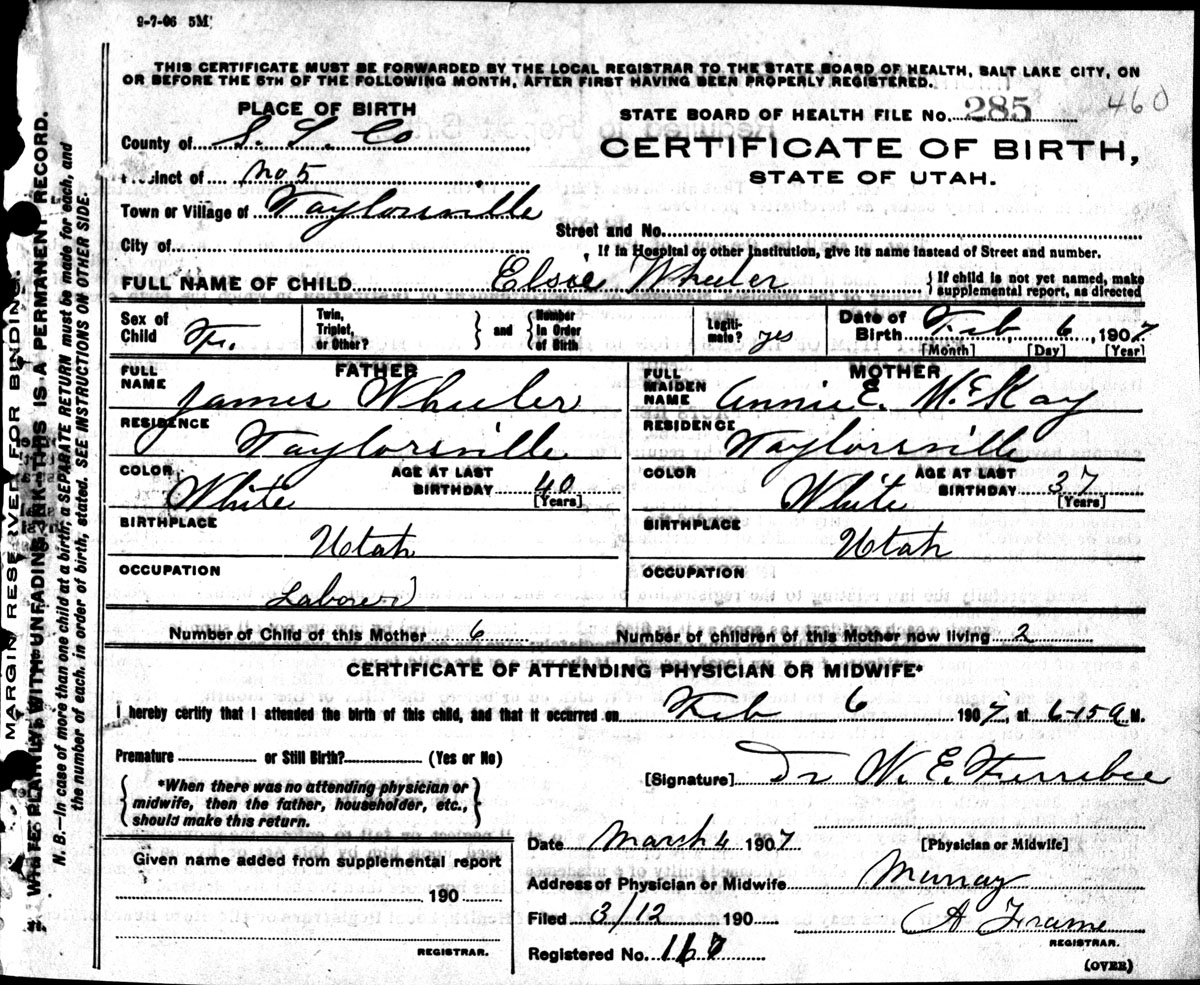 9-7-06 5M
THIS CERTIFICATE MUST BE FORWARDED BY THE LOCAL REGISTRAR TO THE STATE BOARD OF HEALTH, SALT LAKE CITY, ON
OR BEFORE THE 5TH OF THE FOLLOWING MONTH, AFTER FIRST HAVING BEEN PROPERLY REGISTERED.
PLACE OF BIRTH
STATE BOARD OF HEALTH FILE No. 285 460
County of S. L. Co
CERTIFICATE OF BIRTH,
inct of No 5
STATE OF UTAH.
Town or Village of Taylorsville
Street and No.
City of
If in Hospital or other Institution, give its name instead of Street and number.
FULL NAME OF CHILD Elsie Wheeler { If child is not yet named, make supplemental report, as directed
Sex of Child F. Twin, Triplet, or Other? } and { Number in Order of Birth Legitimate? yes Date of Birth Feb, 6, 1907
[Month] [Day] [Year]
FATHER MOTHER
FULL NAME James Wheeler FULL MAIDEN NAME Annie E. McKay
RESIDENCE Taylorsville RESIDENCE Taylorsville
COLOR White AGE AT LAST BIRTHDAY 40 [Years] COLOR White AGE AT LAST BIRTHDAY 37 [Years]
BIRTHPLACE Utah BIRTHPLACE Utah
OCCUPATION Laborer OCCUPATION
Number of Child of this Mother 6 Number of children of this Mother now living 2
CERTIFICATE OF ATTENDING PHYSICIAN OR MIDWIFE*
I hereby certify that I attended the birth of this child, and that it occurred on Feb 6 1907, at 6-15 a M.
Premature or Still Birth? (Yes or No)
[Signature] Dr W. E. Ferrebee
{ *When there was no attending physician or
midwife, then the father, householder, etc.,
should make this return. }
Date March 4 1907 [Physician or Midwife]
Given name added from supplemental report
Address of Physician or Midwife Murray
190
Filed 3/12 190 A Frame
REGISTRAR.
Registered No. 167
REGISTRAR.
(OVER)
MARGIN RESERVED FOR BINDING.
WRITE PLAINLY WITH UNFADING INK—THIS IS A PERMANENT RECORD.
N. B.—In case of more than one child at a birth, a SEPARATE RETURN must be made for each, and
the number of each, in order of birth, stated. SEE INSTRUCTIONS ON OTHER SIDE.